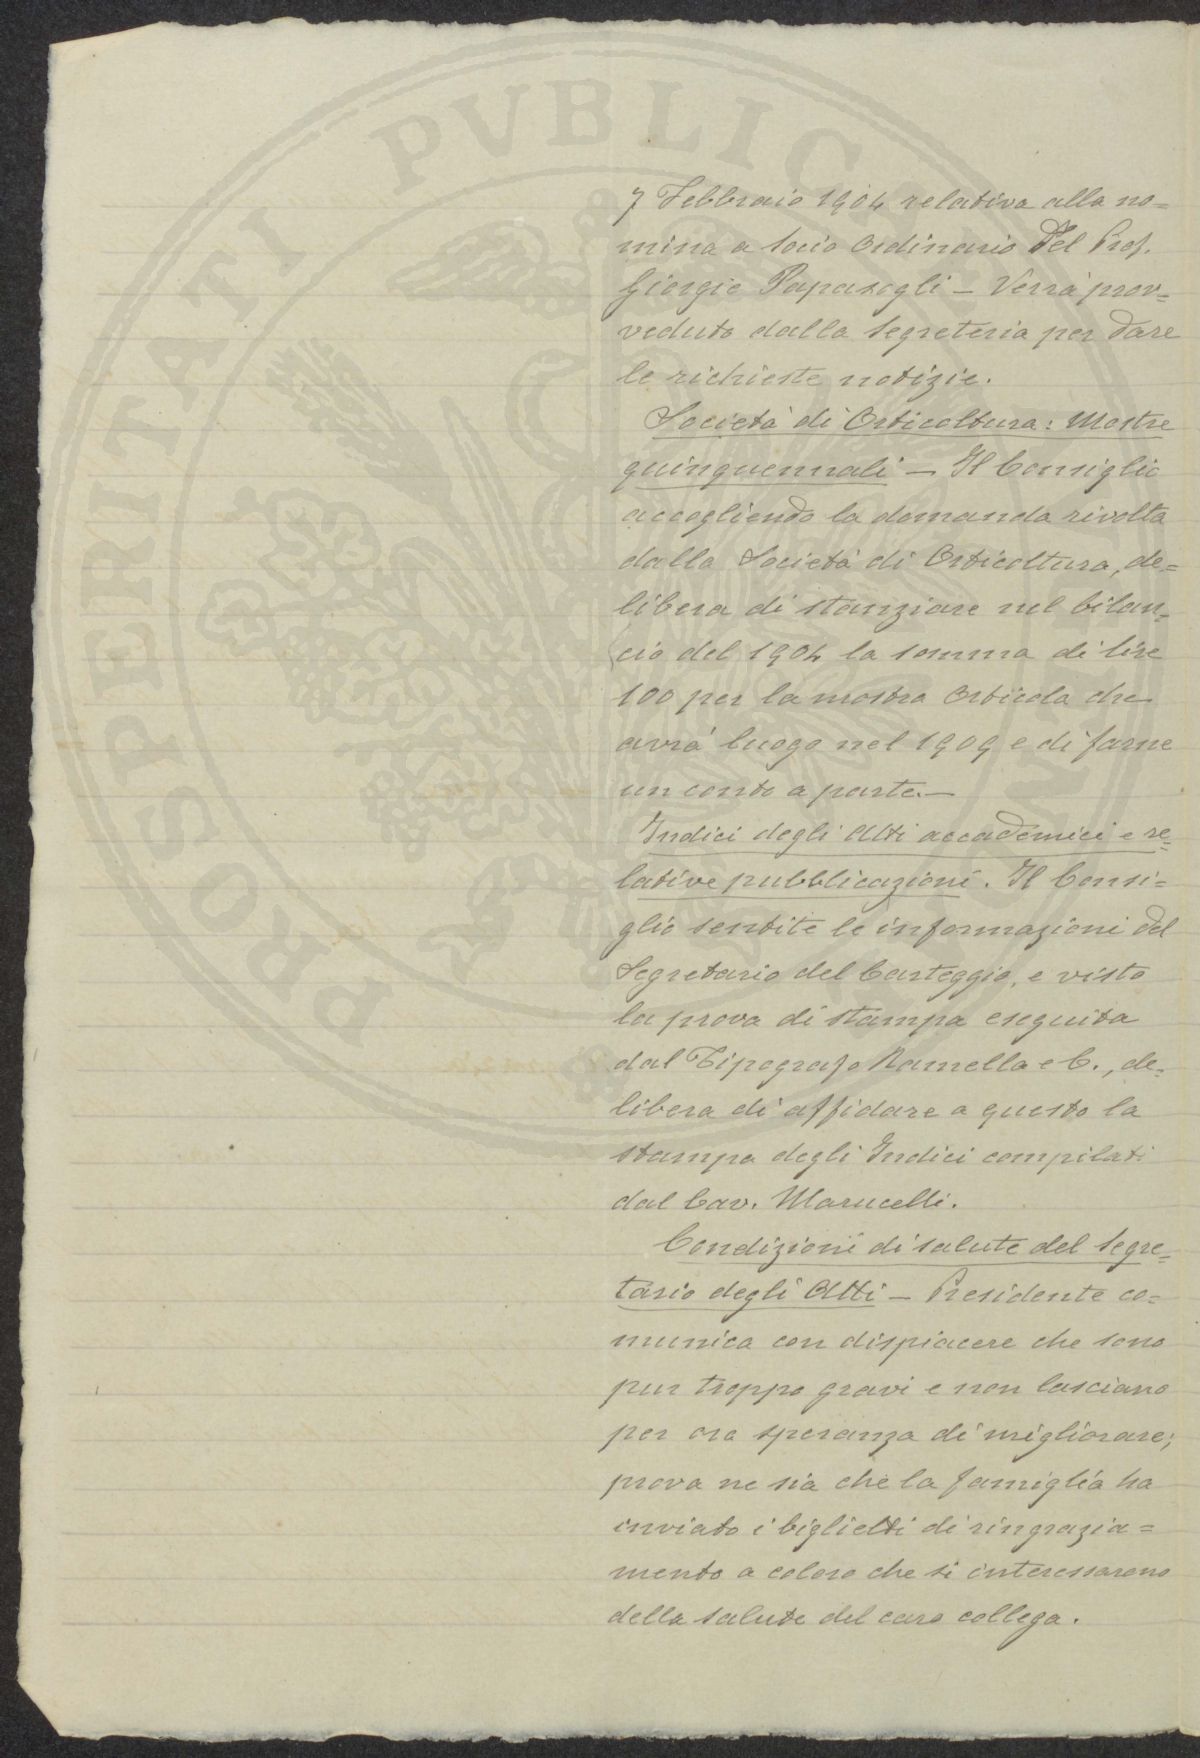 7 Febbraio 1904 relativa alla no=
mina a Socio Ordinario Del Prof.
Giorgio Papasogli – Verrà prov=
veduto dalla Segreteria per dare
le richieste notizie.
Società di Orticoltura: Mostre
quinquennali – Il Consiglio
accogliendo la domanda rivolta
dalla Società di Orticoltura, de=
libera di stanziare nel bilan=
cio del 1904 la somma di lire
100 per la mostra Orticola che
avrà luogo nel 1909 e di farne
un conto a parte.–
Indici degli Atti accademici e re=
lative pubblicazioni. Il Consi=
glio sentite le informazioni del
Segretario del Carteggio, e visto
la prova di stampa eseguita
dal Tipografo Ramella e C., de=
libera di affidare a questo la
stampa degli Indici compilati
dal Cav. Marucelli.
Condizioni di salute del Segre=
tario degli Atti – Presidente co=
munica con dispiacere che sono
pur troppo gravi e non lasciano
per ora speranza di migliorare;
prova ne sia che la famiglia ha
inviato i biglietti di ringrazia=
mento a coloro che si interessarono
della salute del caro collega.
PROSPERITATI PUBLIC